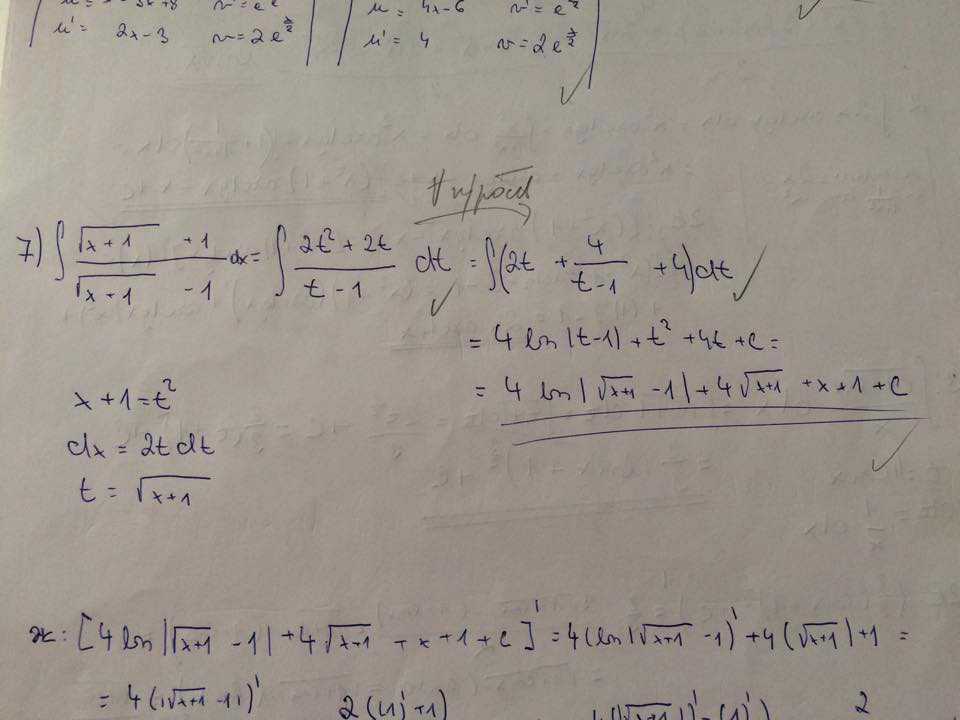 μ' = 2x-3 v = 2e^{x/2}
μ = 4x-6 v' = e^{x/2}
μ' = 4 v = 2e^{x/2}
7) ∫ (√(x+1) +1)/(√(x+1) -1) dx = ∫ (2t² + 2t)/(t-1) dt = ∫(2t + 4/(t-1) + 4)dt
= 4 ln|t-1| + t² + 4t + C =
= 4 ln|√(x+1) -1| + 4√(x+1) + x + 1 + C
x + 1 = t²
dx = 2t dt
t = √(x+1)
[4 ln|√(x+1) -1| + 4√(x+1) + x + 1 + C]' = 4(ln|√(x+1) -1)' + 4(√(x+1)) + 1 =
= 4(|√(x+1) -1|)'